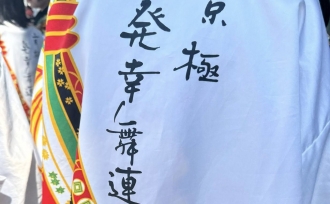 京極
発幸舞連